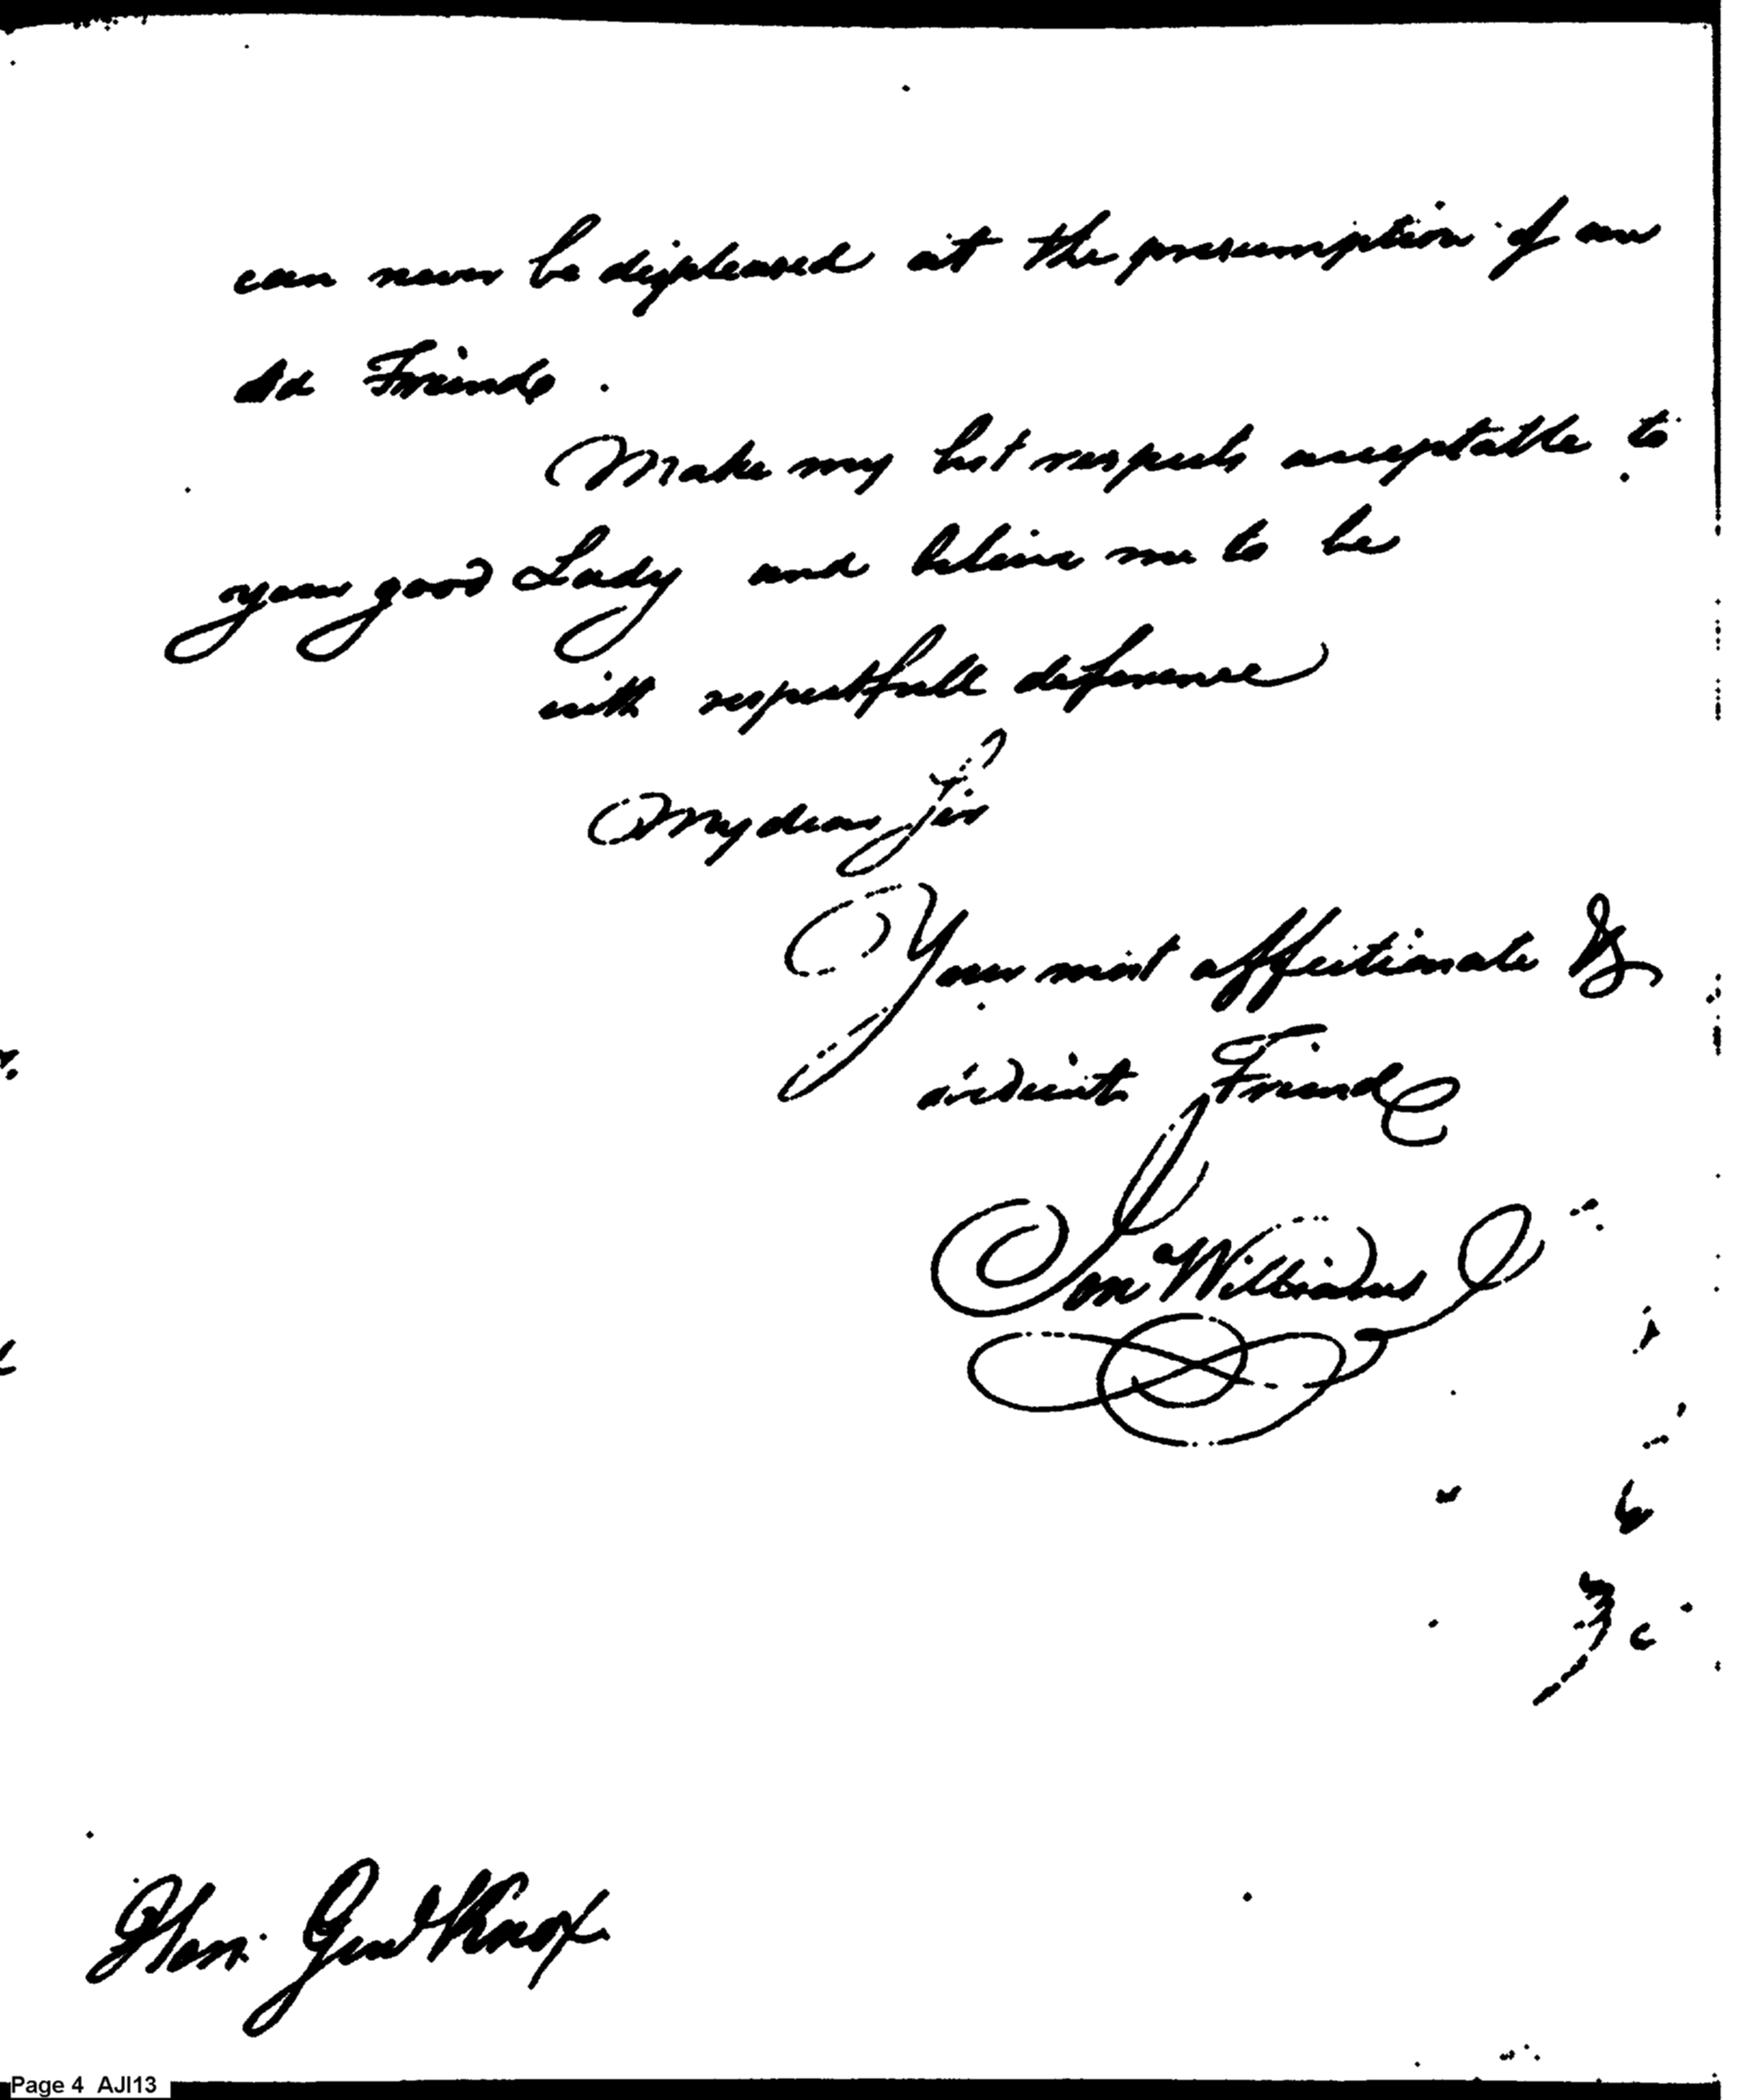 can never be displeased at the presumption of an
old Friend.
Make my best respects acceptable to
your good Lady and believe me to be
with respectfull deference
My dear Sir
Your most affectionate &
obedient Friend
Hon. Genl Knox
Page 4 AJI13